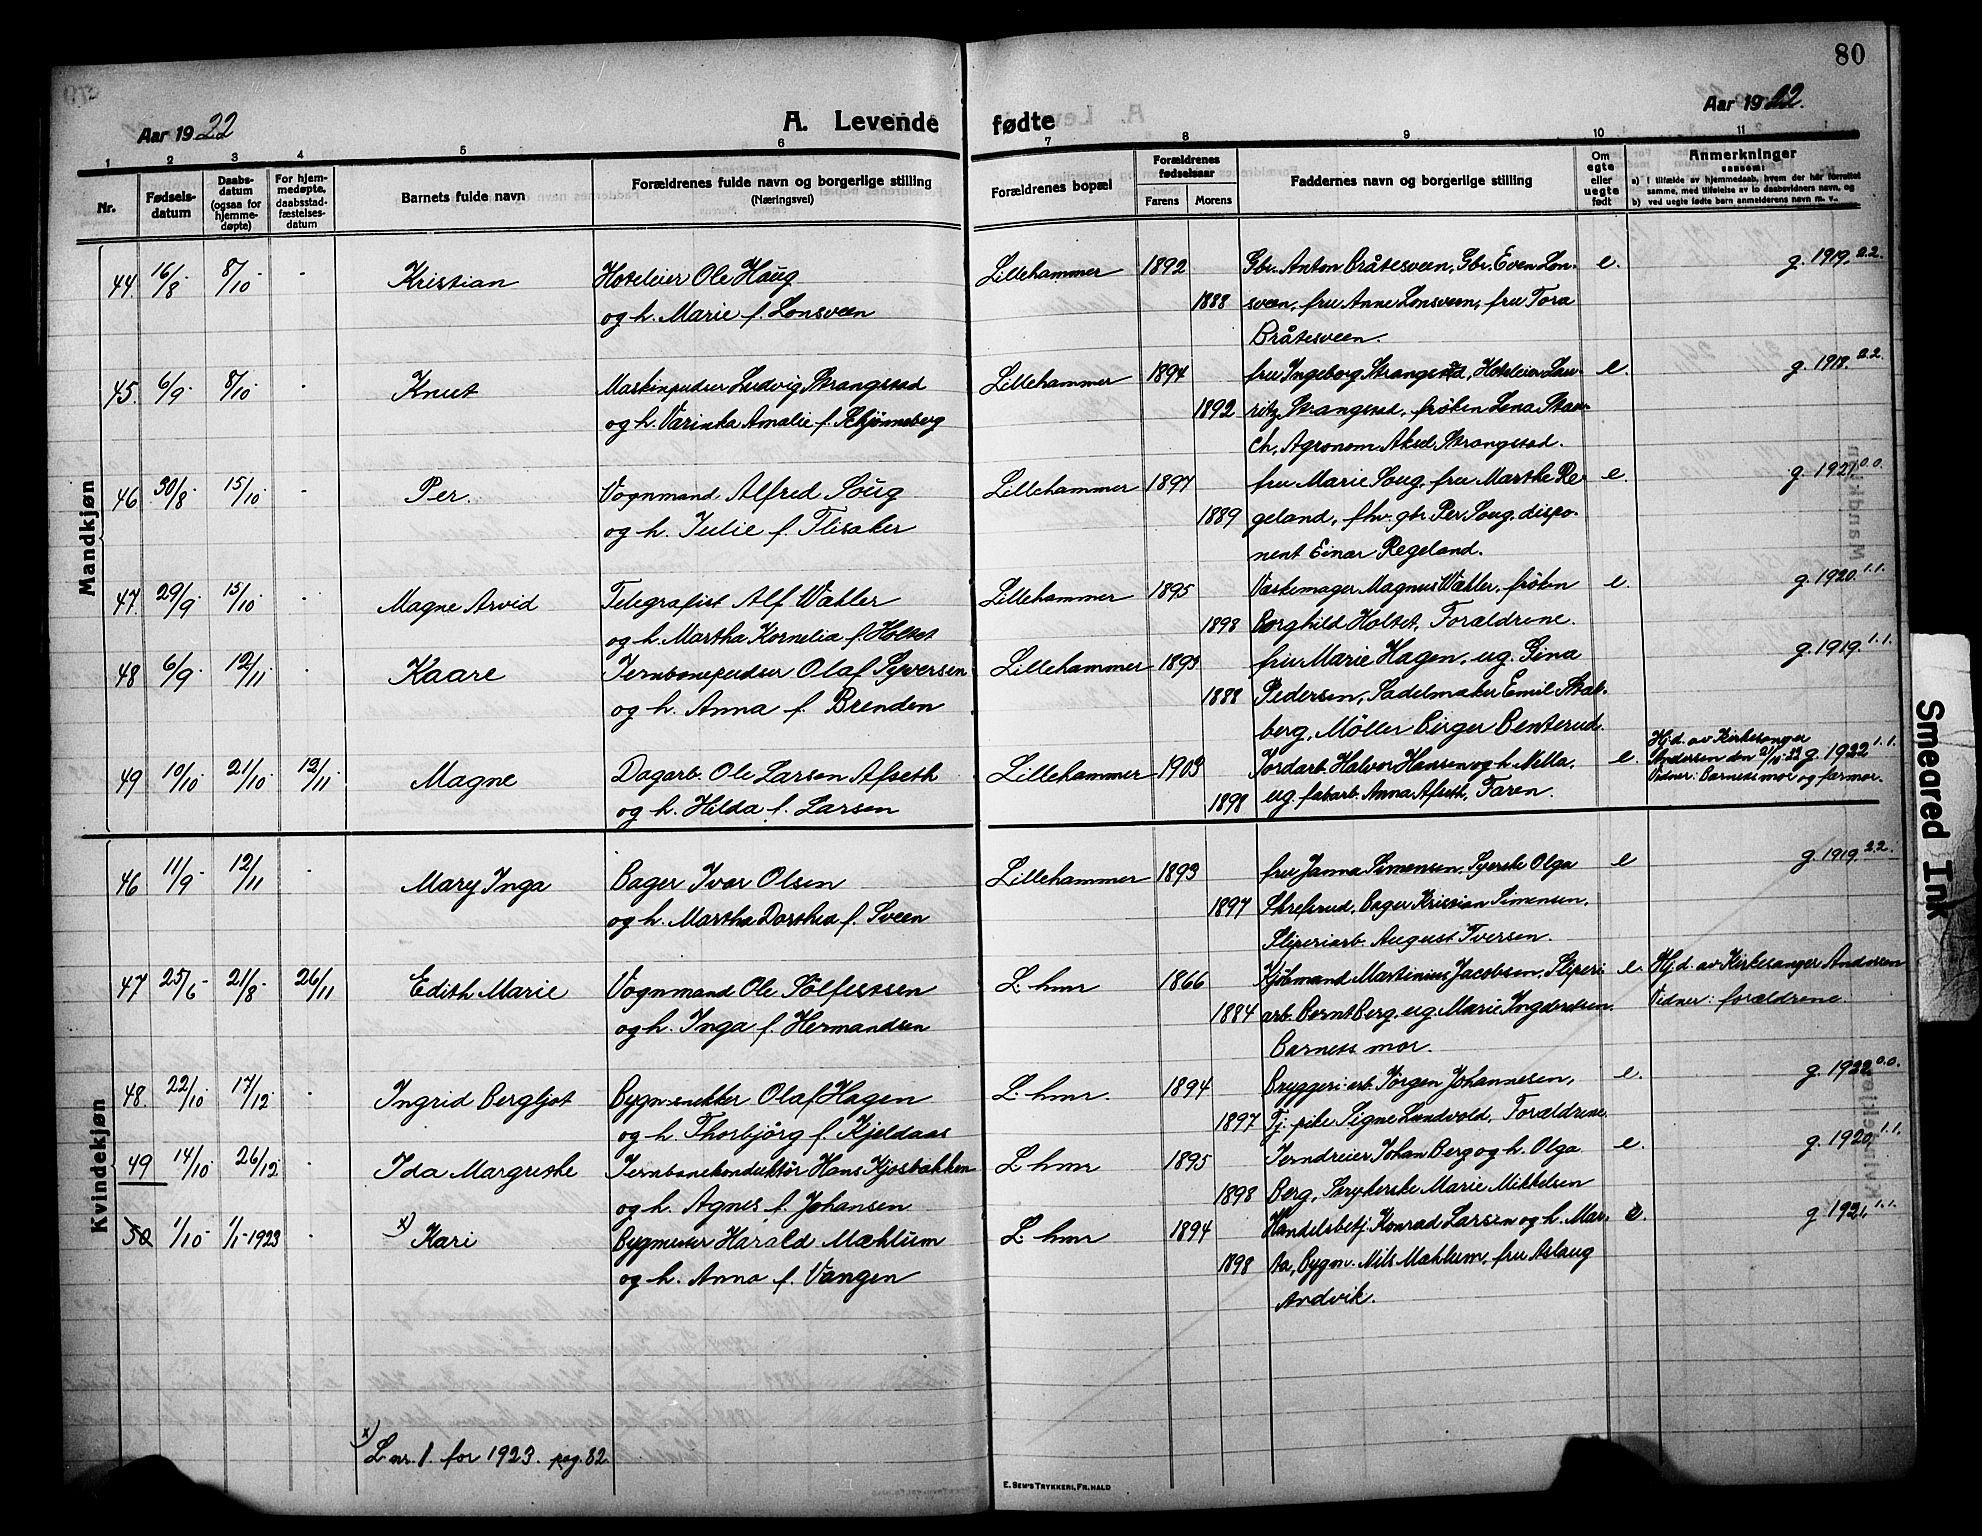 80
Aar 1922
A. Levende fødte
Aar 1922.
1 2 3 4 5 6 7 8 9 10 11
Nr.
Fødsels-
datum
Daabs-
datum
(ogsaa for
hjemme-
døpte)
For hjem-
medøpte,
daabsstad-
fæstelses-
datum
Barnets fulde navn
Forældrenes fulde navn og borgerlige stilling
(Næringsvei)
Forældrenes bopæl
Forældrenes
fødselsaar
Farens Morens
Faddernes navn og borgerlige stilling
Om
egte
eller
uegte
født
Anmerkninger
saasom:
a) i tilfælde av hjemmedaab, hvem der har forrettet
samme, med tilføielse av to daabsvidners navn, og
b) ved uegte fødte barn anmelderens navn m. v.
Mandkjøn
44. 16/8 8/10 - Kristian Hoteleier Ole Haug Lillehammer 1892 Gbr. Anton Bråtesveen, Gbr. Even Lon- e. g. 1919. 2.2.
og h. Marie f. Lonsveen 1888 sveen, fru Anne Lonsveen, fru Tora
Bråtesveen.
45. 6/9 8/10 - Knut Maskinpudser Ludvig Strangstad Lillehammer 1894 fru Ingeborg Strangstad, Hoteleier Lau- e. g. 1918. 2.2.
og h. Varinka Amalie f. Skjønneberg 1892 ritz Strangstad, frøken Lena Stau-
ch, Agronom Aksel Strangstad.
46 30/8 15/10 - Per. Vognmand Alfred Soug Lillehammer 1897 fru Marie Soug, fru Marthe Re- e. g. 1921. 0.0.
og h. Julie f. Flisaker 1889 geland, fhv. gbr. Per Soug, dispo-
nent Einar Regeland.
47. 29/9 15/10 - Magne Arvid Telegrafist Alf Wahler Lillehammer 1895 Værkemager Magnus Wahler, frøken e. g. 1920. 1.1.
og h. Martha Kornelia f. Holtet 1898 Borghild Holtet, Forældrene.
48 6/9 12/11 - Kaare Jernbanepudser Olaf Syversen Lillehammer 1893 fru Marie Hagen, ug. Gina g. 1919. 1.1.
og h. Anna f. Brenden 1888 Pedersen, Sadelmaker Emil Skal-
berg, Møller Birger Benterud.
49 10/10 21/10 12/11 Magne Dagarb. Ole Larsen Afseth Lillehammer 1903 Jordarb. Halvor Hansen og h. Mella, e. Hj.d. av Kirkesanger
Andersen den 21/10-22 g. 1922 1.1.
Vidner: Barnets mor og farmor.
og h. Hilda f. Larsen 1898 ug. fabarb. Anna Afseth, Faren.
Kvindekjøn
46 11/9 12/11 - Mary Inga Bager Ivar Olsen Lillehammer 1893 fru Janna Simensen, Syerske Olga e g. 1919. 2.2.
og h. Martha Dorthea f. Sveen 1897 Skrefsrud, Bager Kristian Simensen,
Sliperiarb. August Iversen.
47 25/6 21/8 26/11 Edith Marie Vognmand Ole Sølfestsen L. hmr 1866 Kjøbmand Martinius Jacobsen, Sliperi- e. Hj.d. av Kirkesanger Andersen
og h. Inga f. Hermandsen 1884 arb. Bernt Berg, ug. Marie Ingebretsen. Vidner: forældrene.
Barnets mor.
48. 22/10 17/12 - Ingrid Bergljot Bygn.snekker Olaf Hagen L. hmr. 1894 Bryggeriarb. Jørgen Johannesen, e. g. 1922 0.0.
og h. Thorbjørg f. Kjeldaas 1897 Tj. pike Signe Lundvold, Forældrene.
49 14/10 26/12 - Ida Margrethe Jernbanekonduktør Hans Kjosbakken L. hmr 1895 Jerndreier Johan Berg og h. Olga e. g. 1920. 1.1.
og h. Agnes f. Johansen 1898 Berg, Strykerske Marie Mikkelsen
50 1/10 1/1-1923 - x) Kari Bygmester Harald Mæhlum L. hmr 1894 Handelsbetj. Konrad Larsen og h. Mar- e. g. 1921. 1.1.
og h. Anna f. Vangen 1898 ta, Bygm. Nils Mæhlum, fru Aslaug
Andvik.
x) L. nr. 1. for 1923. pag. 82.
E. Sem's Trykkeri, Fr.hald
Smeared Ink